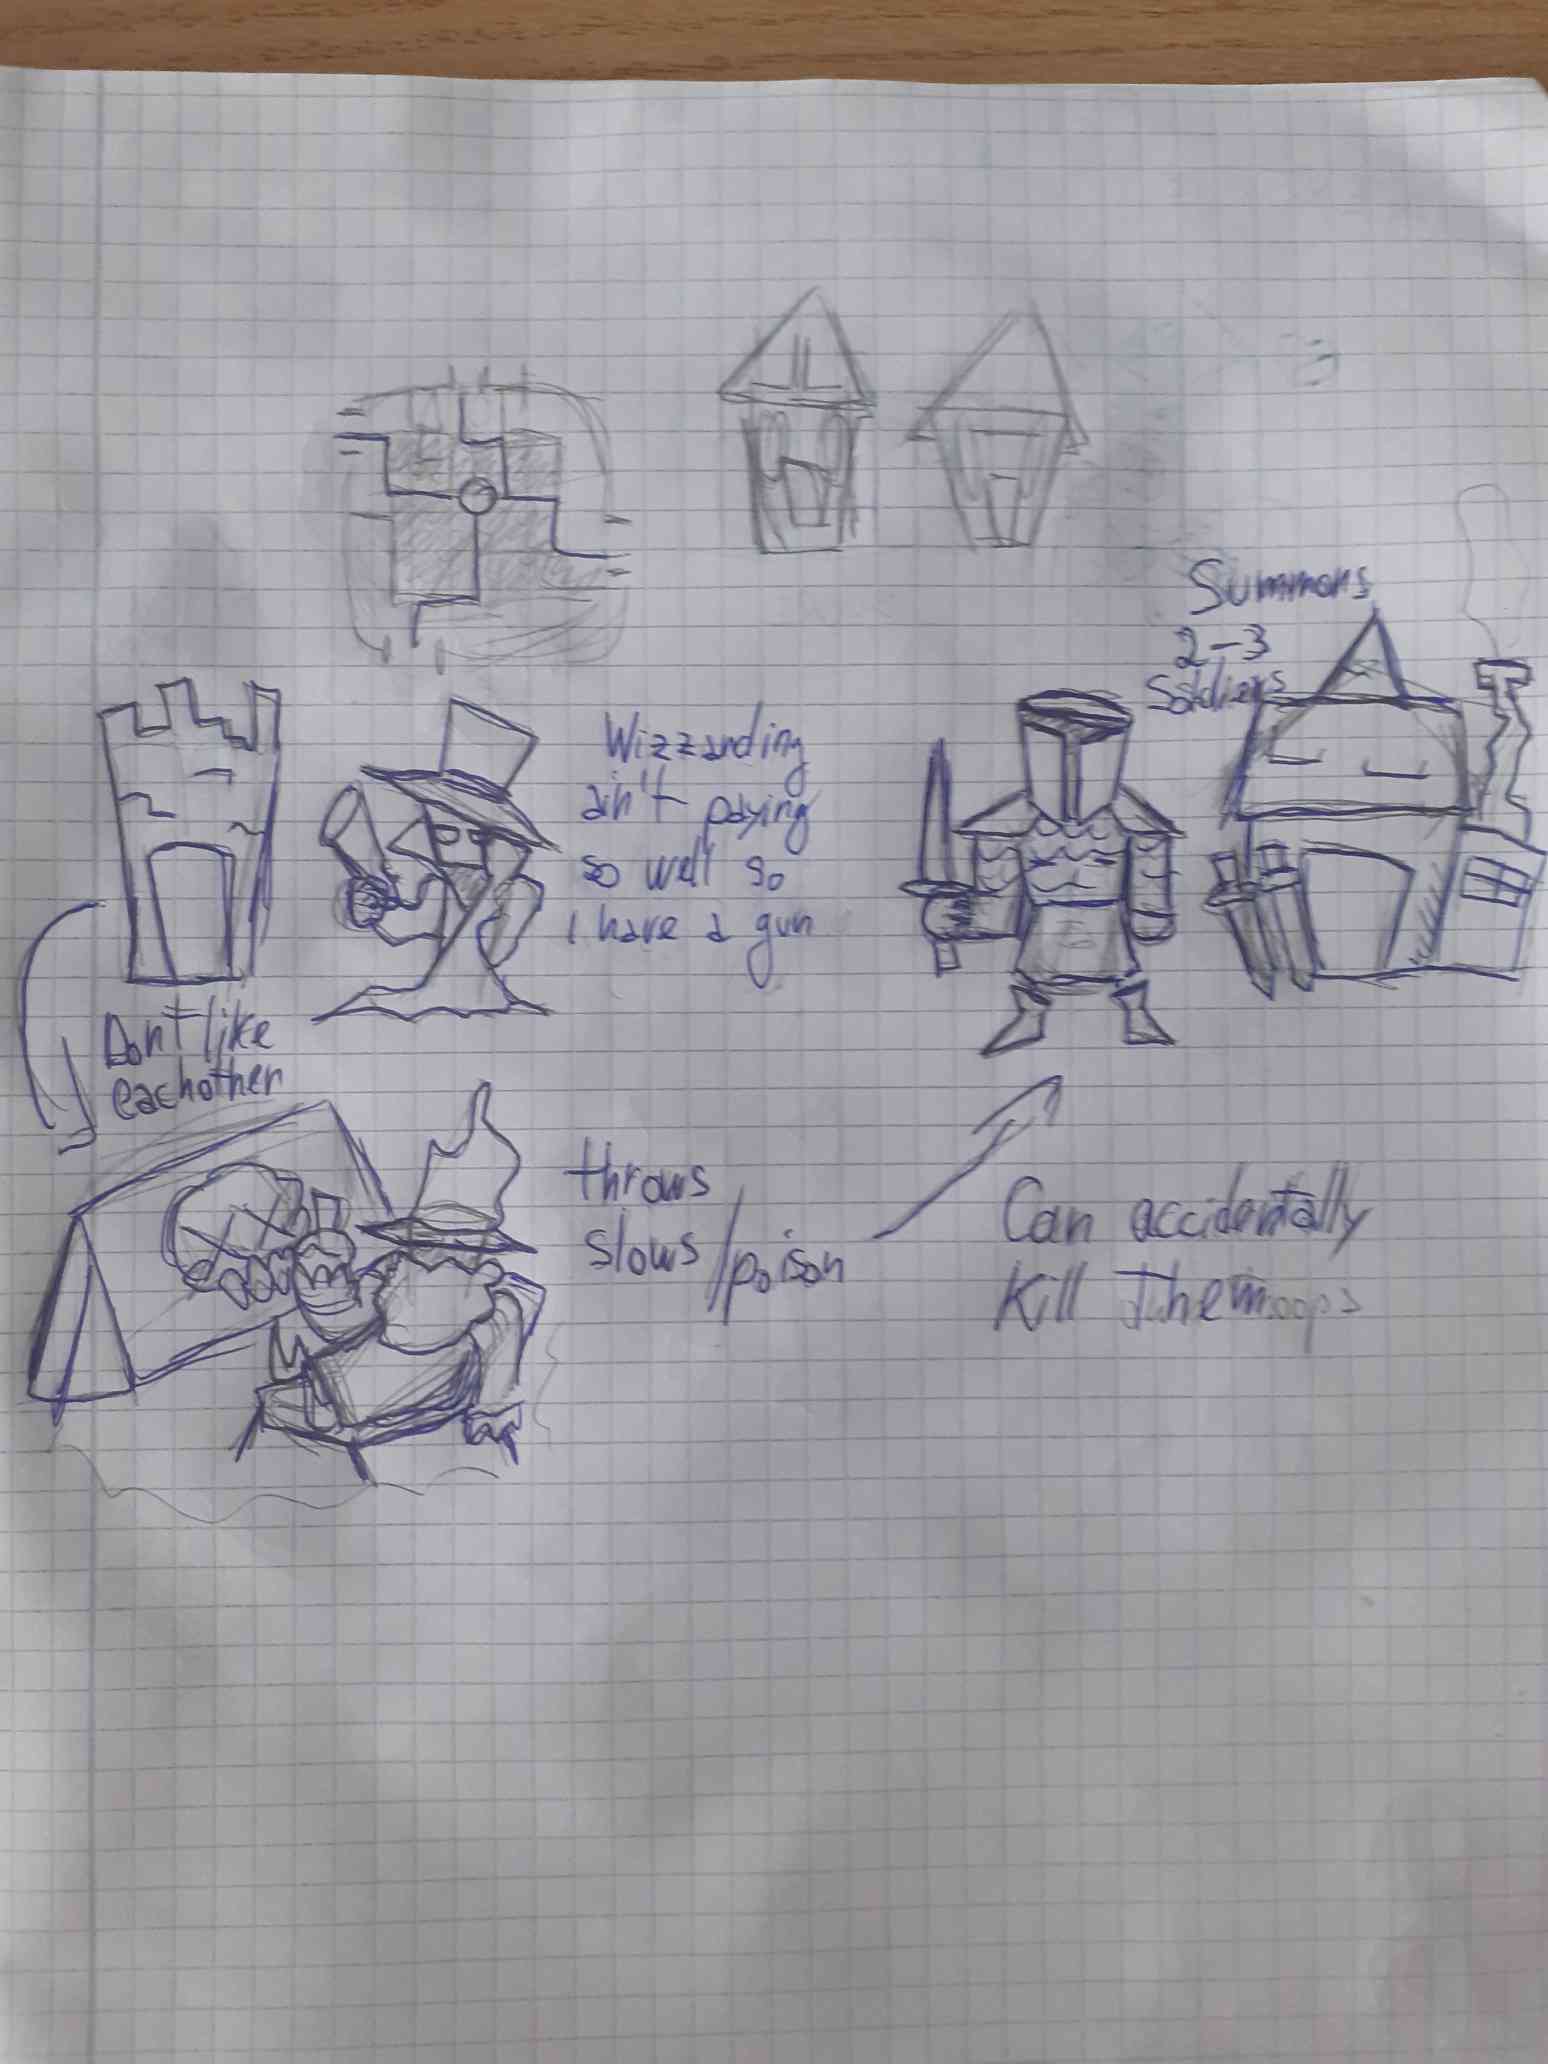 Summons
2-3
Soldiers
Wizzarding
ain't paying
so well so
I have a gun
Don't like
eachother
throws
slows/poison
Can accidentally
Kill them oops